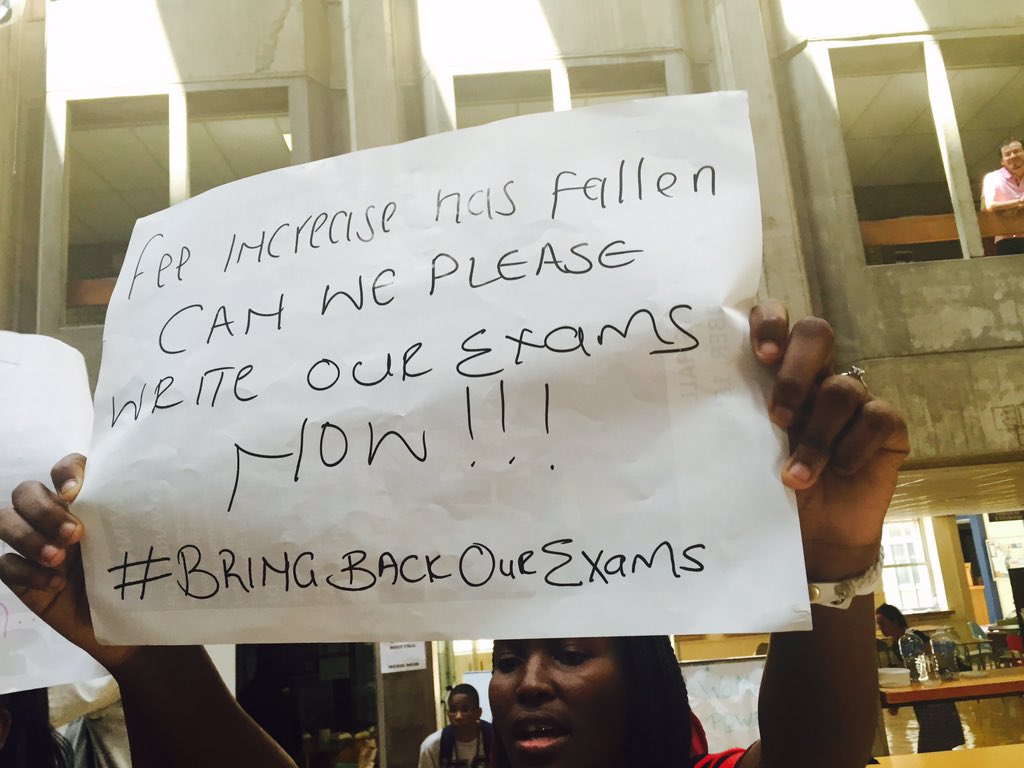 Fee Increase has Fallen
CAN WE PLEASE
WRITE OUR Exams
NOW!!!
#BRINGBACKOurExams